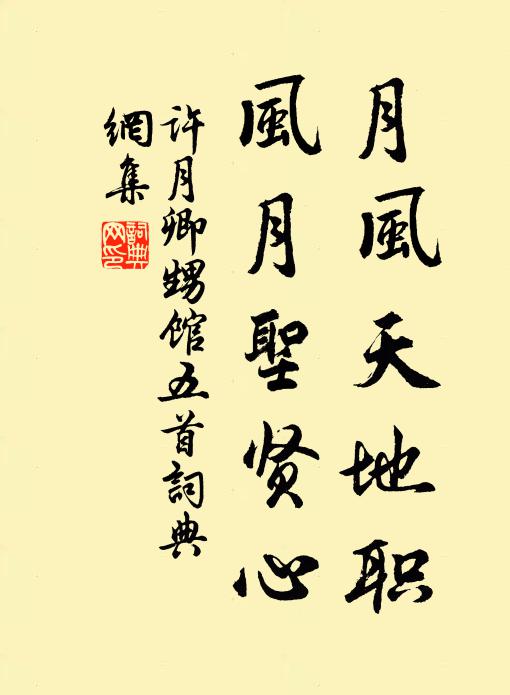 月風天地职
風月聖贤心
许月卿甥馆五首詞典
網集
詞典
网印